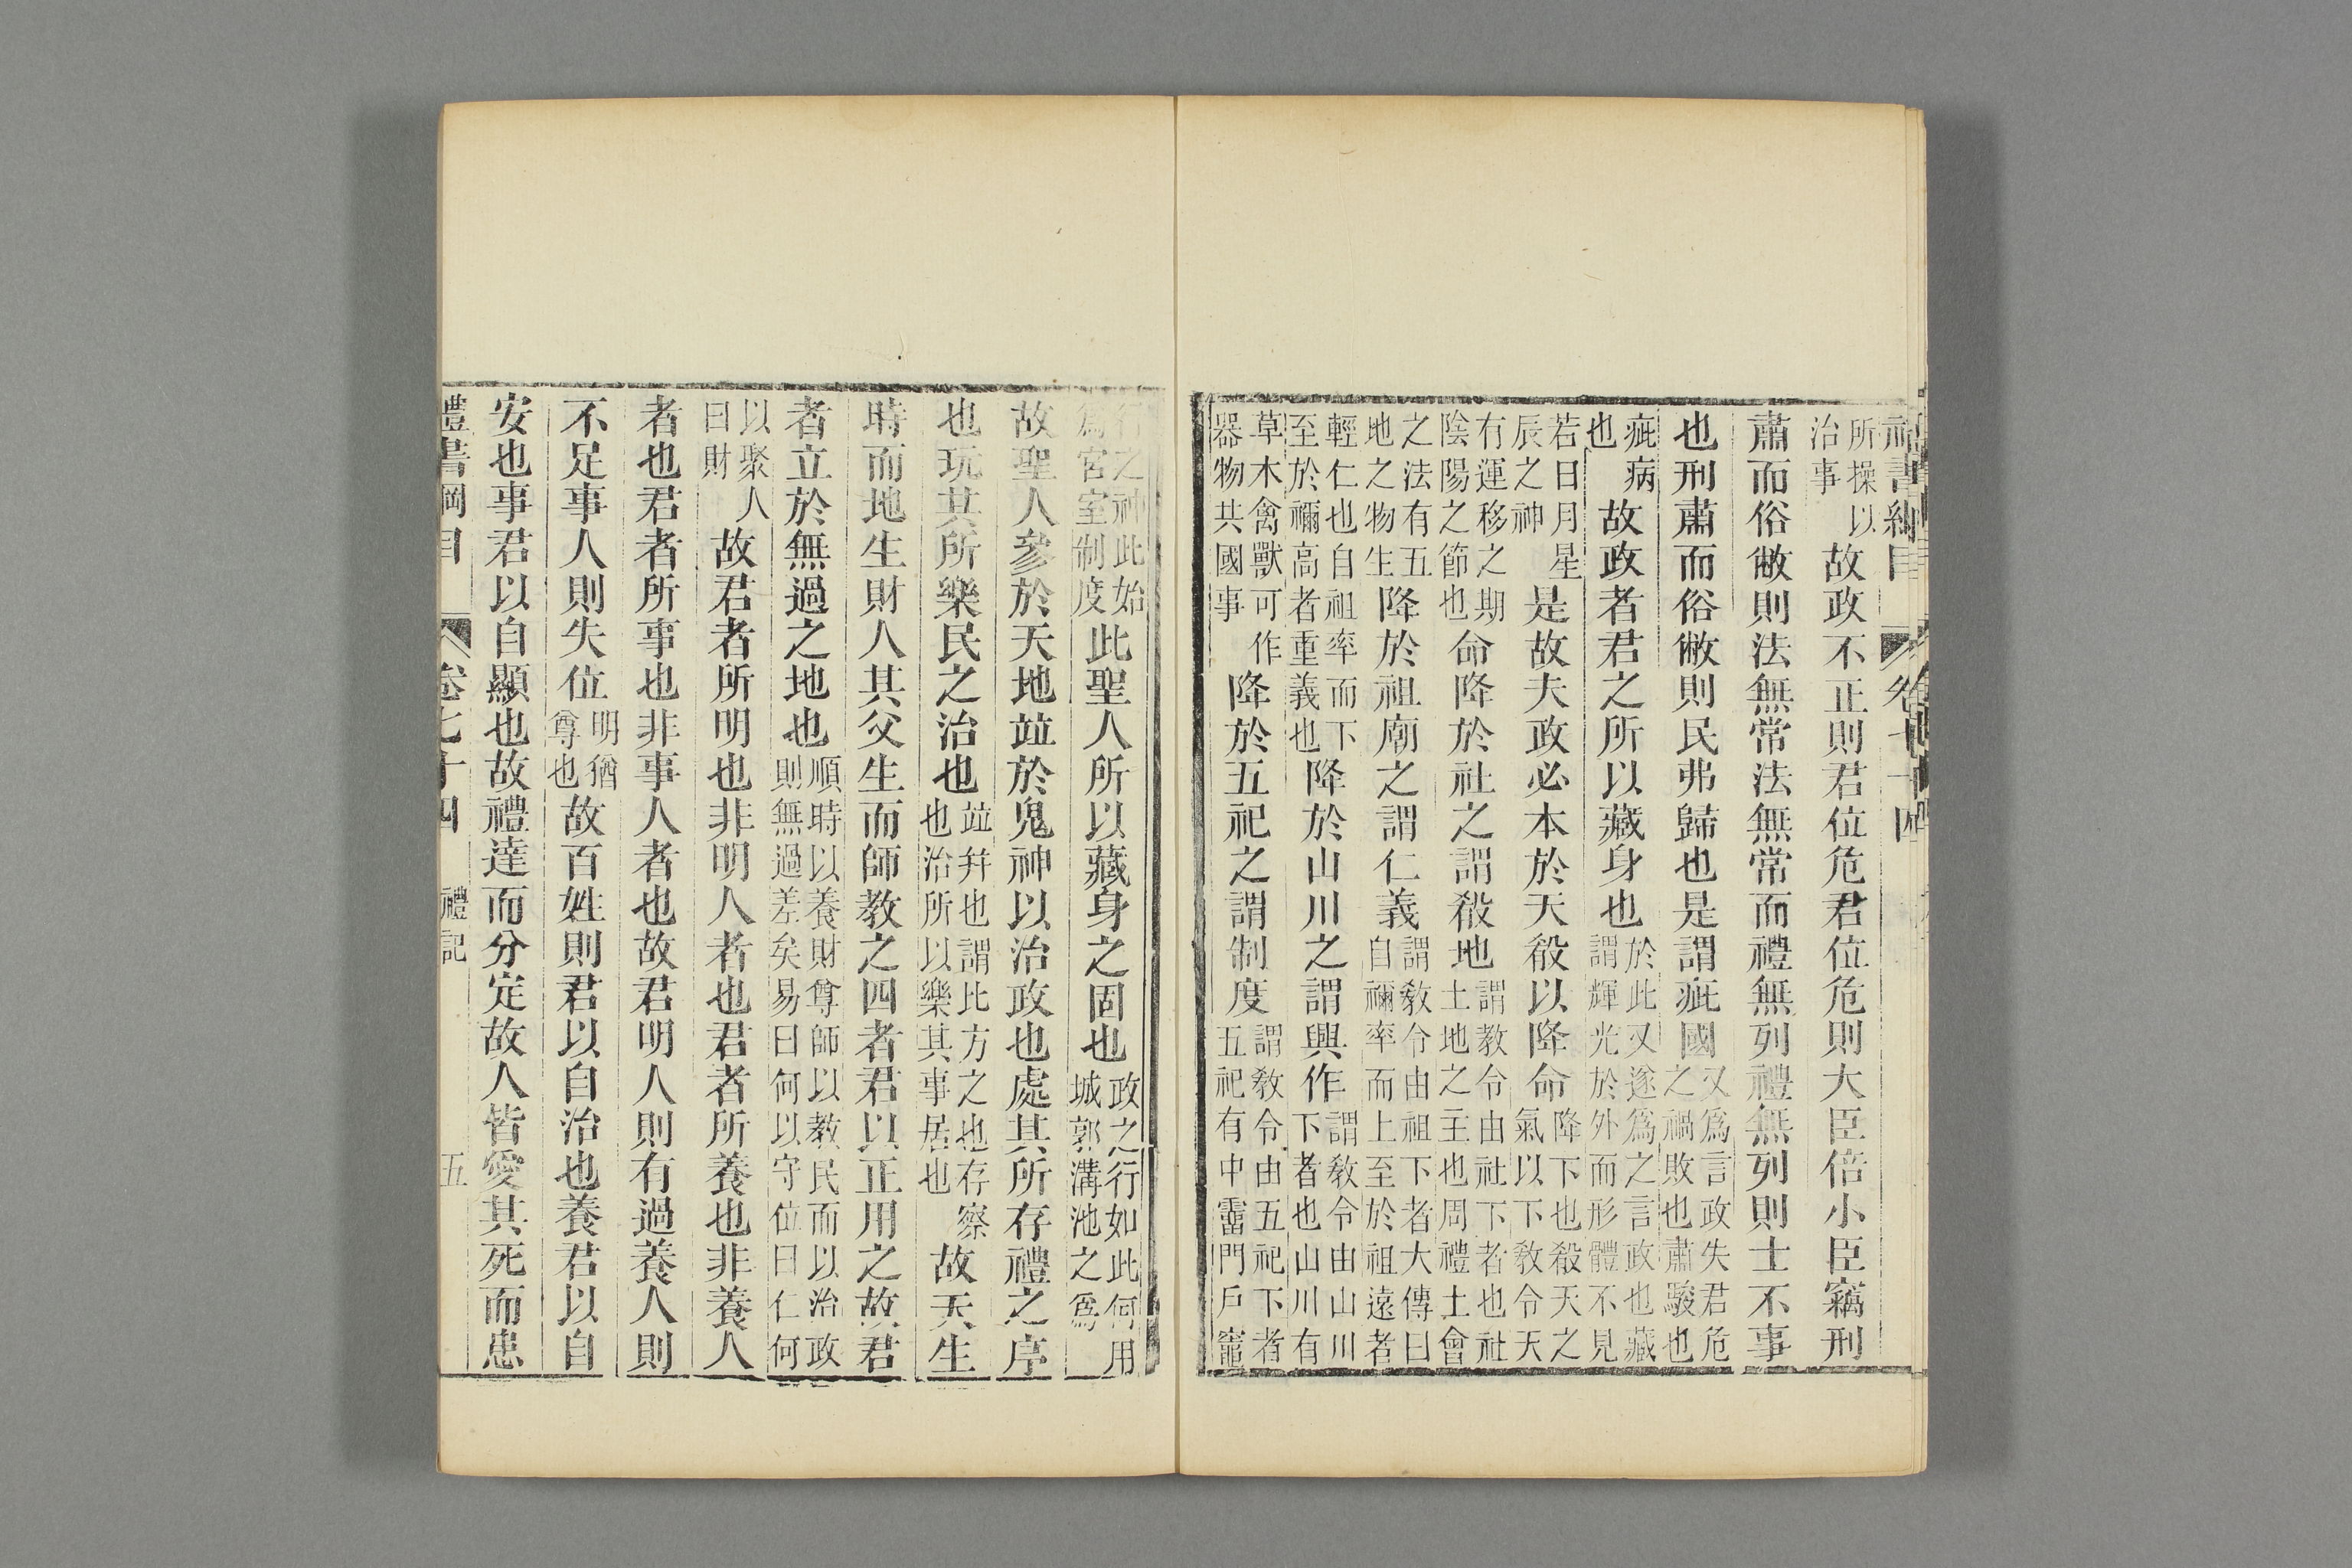 禮書綱目 卷七十四
所操以治事故政不正則君位危君位危則大臣倍小臣竊刑
肅而俗敝則法無常法無常而禮無列禮無列則士不事
也刑肅而俗敝則民弗歸也是謂疵國又爲言政失君危之禍敗也肅駿也
疵病也故政者君之所以藏身也於此又遂爲之言政也藏謂輝光於外而形體不見
若日月星辰之神是故夫政必本於天殽以降命降下也殽天之氣以下敎令天
有運移之期陰陽之節也命降於社之謂殽地謂教令由社下者也社土地之主也周禮土會
之法有五地之物生降於祖廟之謂仁義謂敎令由祖下者大傳曰自禰率而上至於祖遠者
輕仁也自祖率而下至於禰高者重義也降於山川之謂興作謂敎令由山川下者也山川有
草木禽獸可作器物共國事降於五祀之謂制度謂敎令由五祀下者五祀有中霤門戶竈
行之神此始爲宮室制度此聖人所以藏身之固也政之行如此何用城郭溝池之爲
故聖人參於天地竝於鬼神以治政也處其所存禮之序
也玩其所樂民之治也竝并也謂比方之也存察也治所以樂其事居也故天生
時而地生財人其父生而師教之四者君以正用之故君
者立於無過之地也順時以養財尊師以教民而以治政則無過差矣易曰何以守位曰仁何
以聚人曰財故君者所明也非明人者也君者所養也非養人
者也君者所事也非事人者也故君明人則有過養人則
不足事人則失位明猶尊也故百姓則君以自治也養君以自
安也事君以自顯也故禮達而分定故人皆愛其死而患
禮書綱目 卷七十四 禮記 五